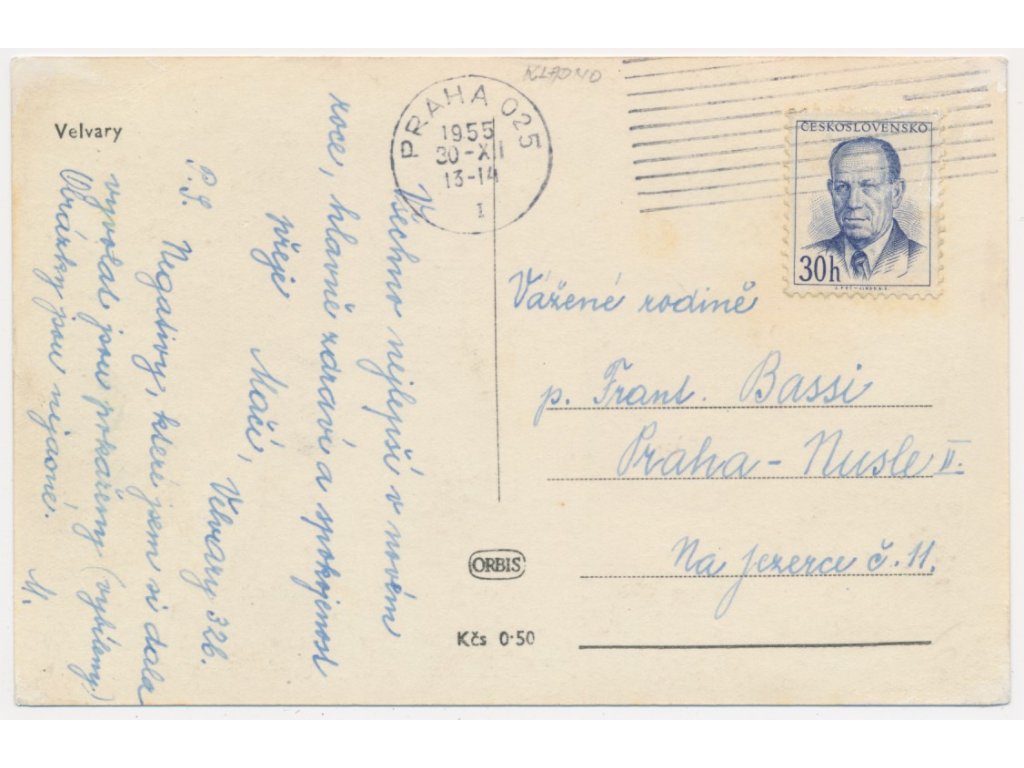 Velvary
KLADNO
PRAHA 025
1955
30-XII
13-14
1
ČESKOSLOVENSKO
30h
Všechno nejlepší v novém
roce, hlavně zdraví a spokojenost
přeje Mačí, Velvary 326.
P.S. Negativy, které jsem si dala
vyvolat jsou zkažémy (vybíleny.)
Obrázky jsou nejasné. M.
Vážené rodině
p. Frant. Bassi
Praha – Nusle II.
Na jezerce č. 11.
ORBIS
Kčs 0·50